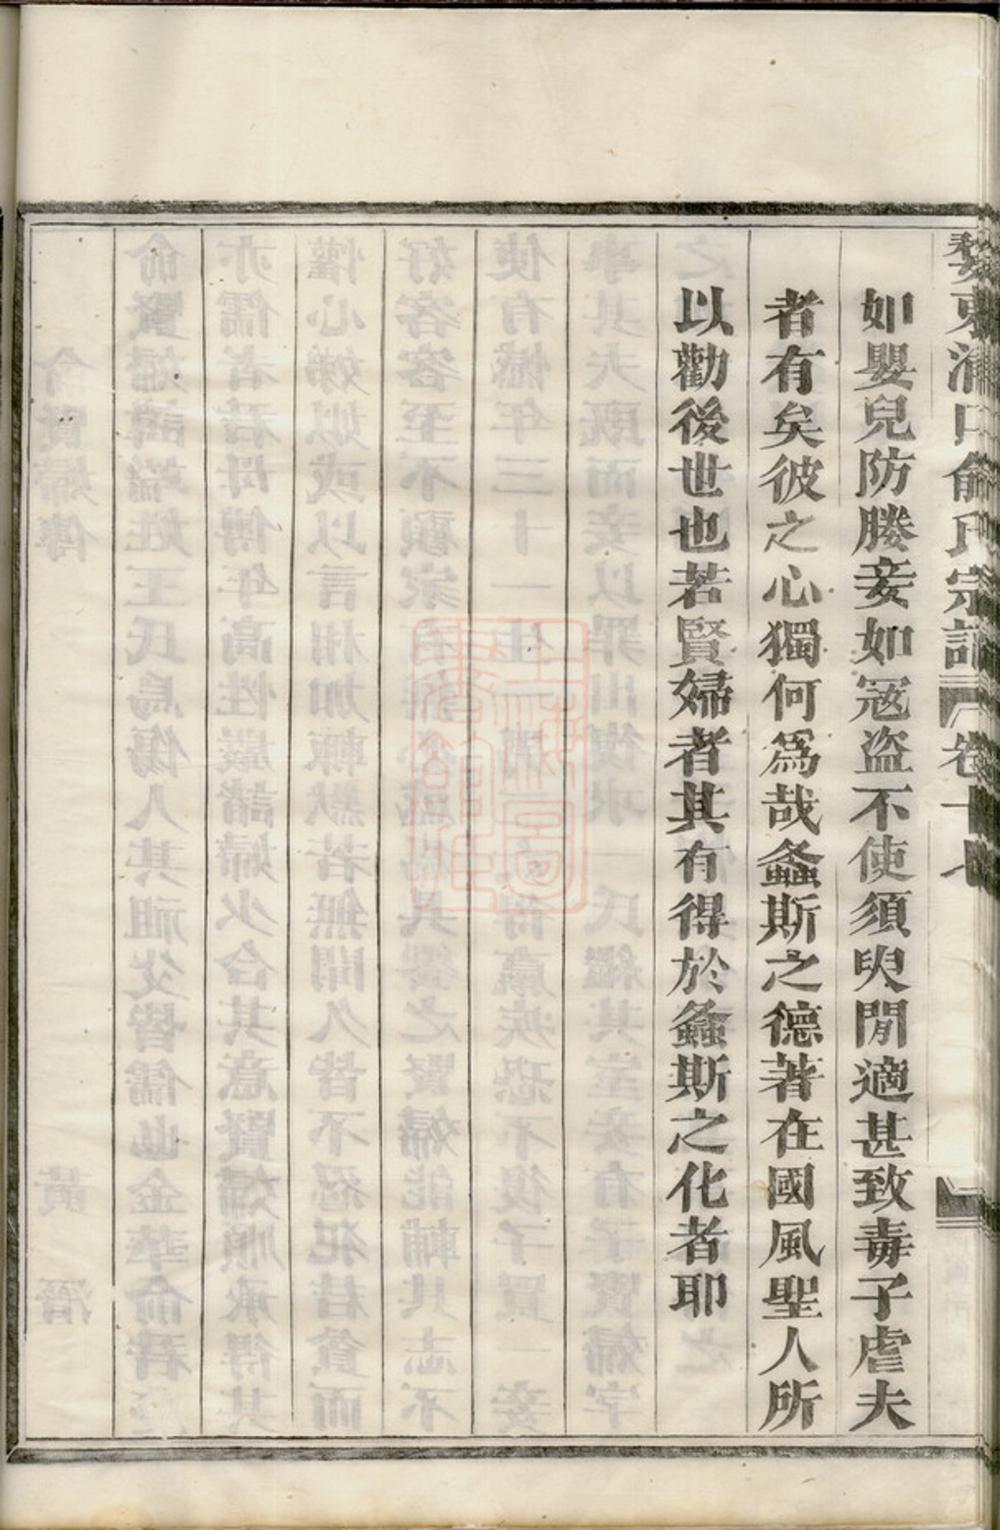 婺東浦口俞氏宗譜 卷十七
如嬰兒防媵妾如冦盜不使須臾閒適甚致毒子虐夫
者有矣彼之心獨何爲哉螽斯之德著在國風聖人所
以勸後世也若賢婦者其有得於螽斯之化者耶